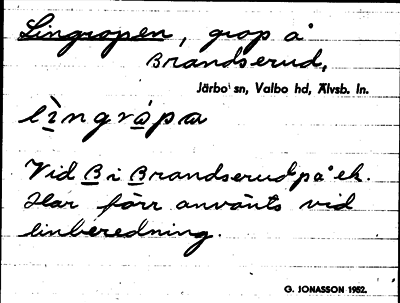 Lingropen, grop å
Brandserud,
Järbo sn, Valbo hd, Älvsb. ln.
lìngrópa
Vid B i Brandserud på ek.
Har förr använts vid
linberedning.
G. JONASSON 1952.